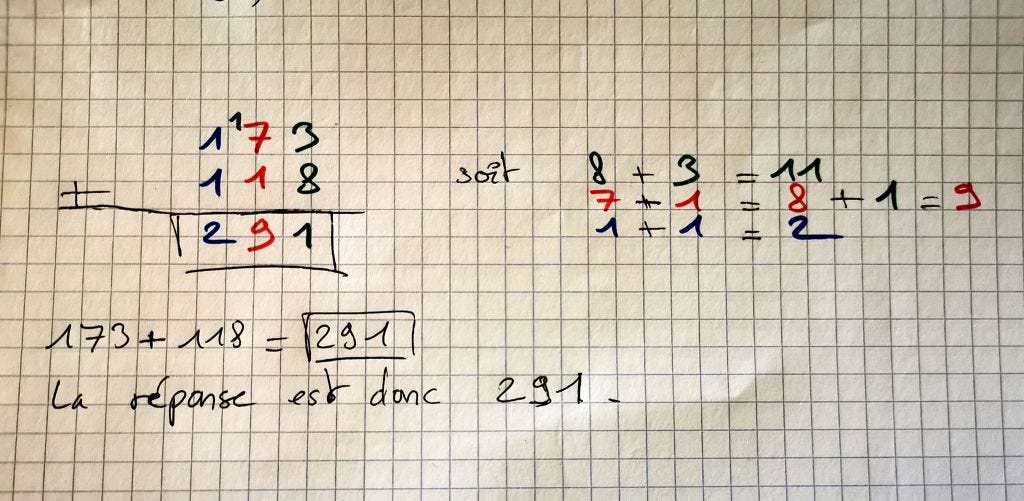 1 ¹7 3
+ 1 1 8
2 9 1
soit 8 + 3 = 11
7 + 1 = 8 + 1 = 9
1 + 1 = 2
173 + 118 = 291
La réponse est donc 291.